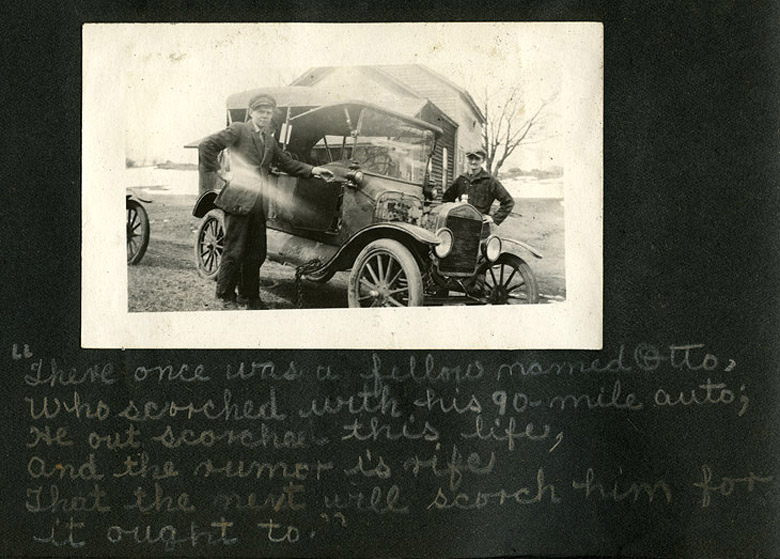 "There once was a fellow named Otto,
Who scorched with his 90-mile auto;
He out scorched this life,
And the rumor is rife
That the next will scorch him for
it ought to."